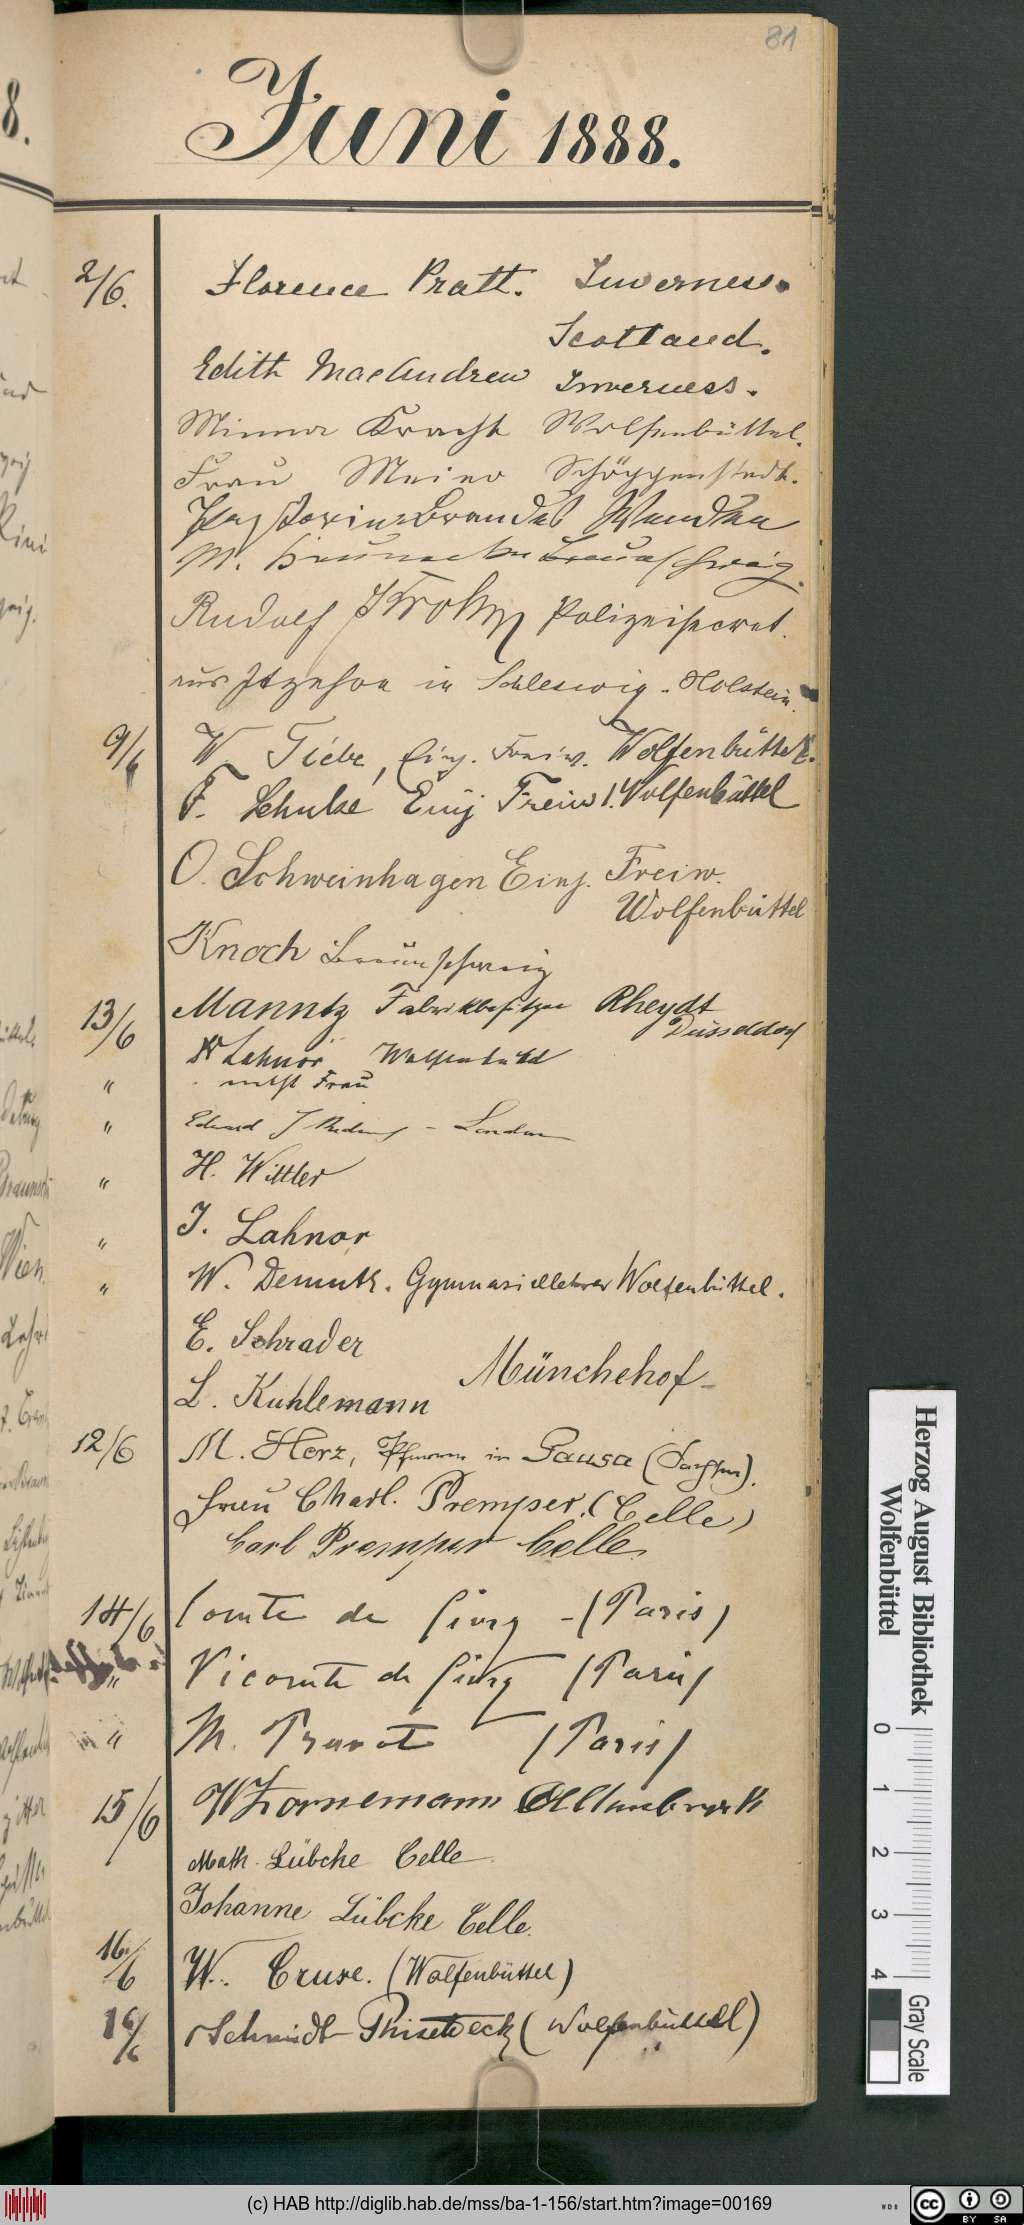 81
Juni 1888.
2/6. Florence Pratt. Inverness.
Scotland.
Edith MacAndrew Inverness.
Minna Kracht Wolfenbüttel.
Frau Meier Schöppenstedt.
Brandes
M. Braunschweig.
Rudolf Krohn Polizeisecret.
aus Itzehoe in Schleswig-Holstein.
9/6 W. Tiebe, Einj. Freiw. Wolfenbüttel.
F. Schulze Einj Freiw. Wolfenbüttel
O. Schweinhagen Einj. Freiw.
Wolfenbüttel
Knoch Braunschweig
13/6 Manntz Fabrikbesitzer Rheydt
Düsseldorf
Dr Lahnor Wolfenbüttel
" nebst Frau
" Edward J - London
" H. Wittler
" J. Lahnor
" W. Demuth. Gymnasiallehrer Wolfenbüttel.
E. Schrader
Münchehof
L. Kuhlemann
12/6 M. Herz, in Pausa (Sachsen).
Frau Charl. Premper. (Celle)
Carl Premper Celle
14/6 Comte de Civry - (Paris)
" Vicomte de Civry (Paris)
" M. (Paris)
15/6 W Hornemann
Math. Lübcke Celle
Johanne Lübcke Celle.
16/6 W. Cruse. (Wolfenbüttel)
16/6 Schmidt-Phiseldeck (Wolfenbüttel)
Herzog August Bibliothek
Wolfenbüttel
0 1 2 3 4
Gray Scale
(c) HAB http://diglib.hab.de/mss/ba-1-156/start.htm?image=00169
WDB
cc BY SA